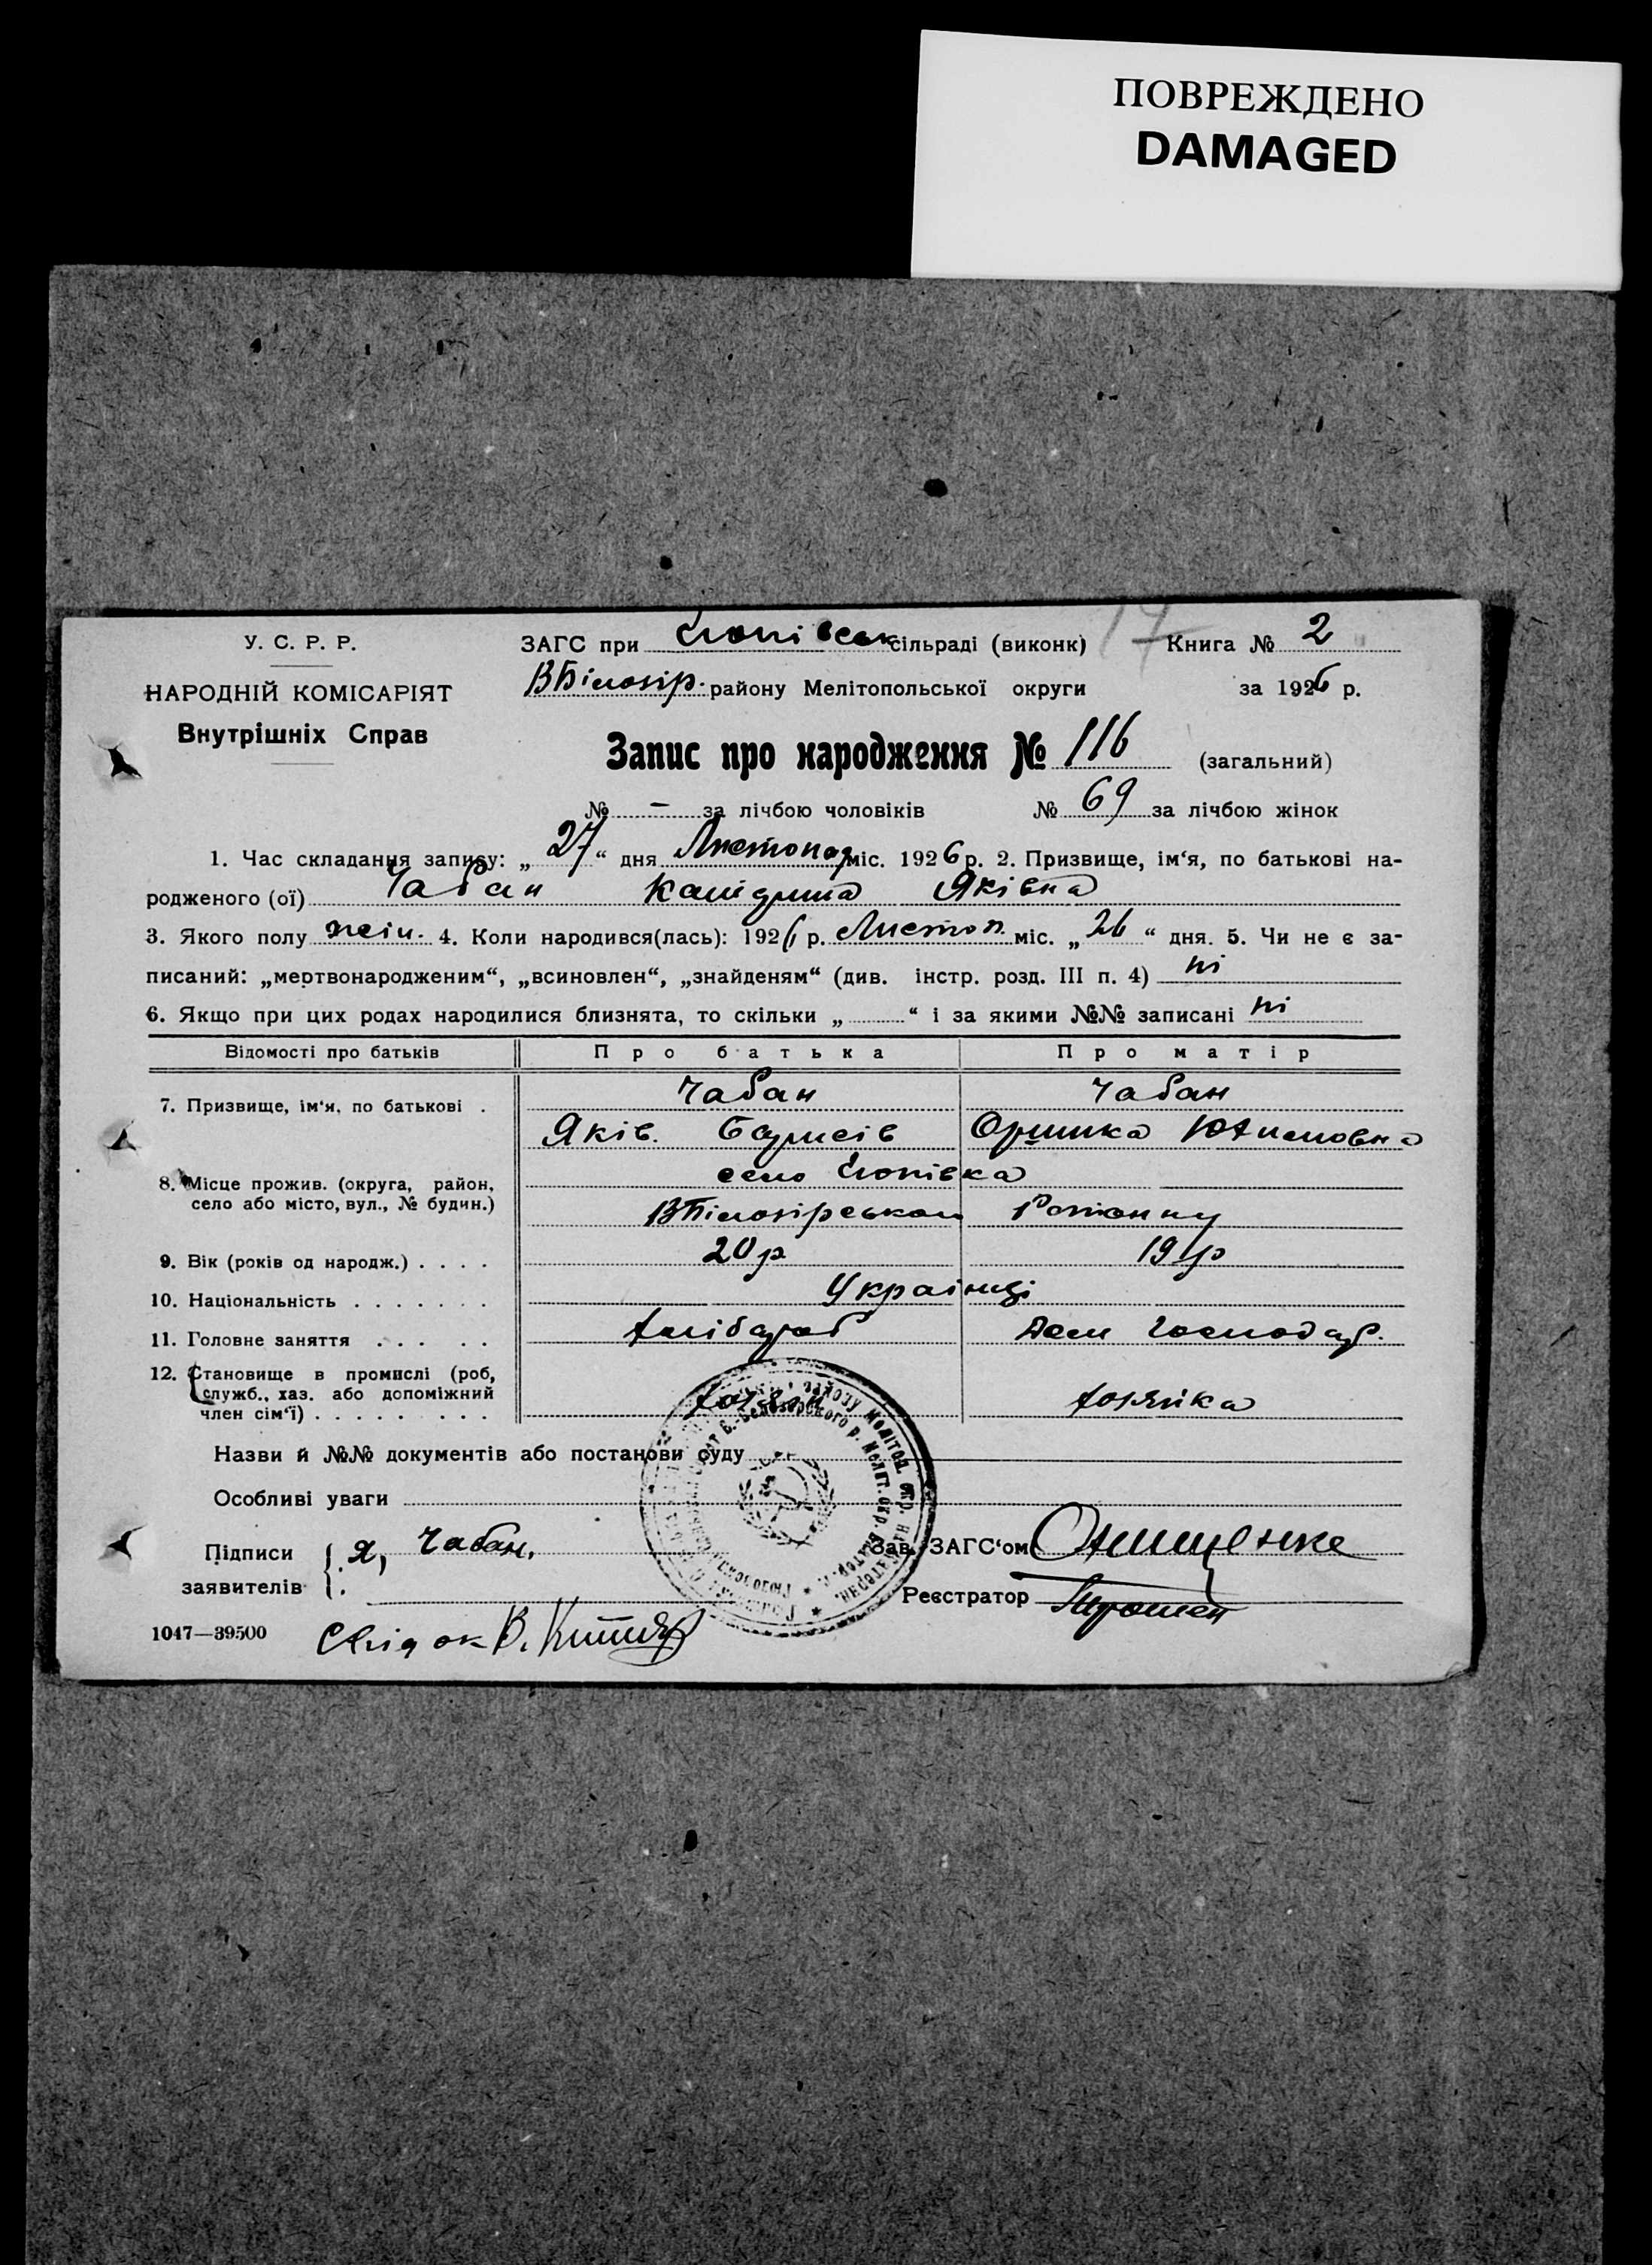 ПОВРЕЖДЕНО
DAMAGED
У. С. Р. Р.
НАРОДНІЙ КОМІСАРІЯТ
Внутрішніх Справ
17
ЗАГС при сільраді (виконк) Книга № 2
ВБілозір. району Мелітопольської округи за 1926 р.
Запис про народження № 116 (загальний)
№ – за лічбою чоловіків № 69 за лічбою жінок
1. Час складання запису: „27“ дня Листопад міс. 1926 р. 2. Призвище, ім‘я, по батькові на-
родженого (ої) Чабан Яківна
3. Якого полу жін. 4. Коли народився(лась): 1926 р. Листоп. міс. „26“ дня. 5. Чи не є за-
писаний: „мертвонародженим“, „всиновлен“, „знайденям“ (див. інстр. розд. III п. 4) ні
6. Якщо при цих родах народилися близнята, то скільки „ “ і за якими №№ записані ні
Відомості про батьків Про батька Про матір
7. Призвище, ім‘я, по батькові . Чабан Чабан
Яків.
8. Місце прожив. (округа, район, село
село або місто, вул., № будин.) ВБілозірського
9. Вік (років од народж.) . . . . 20 р 19 р
10. Національність . . . . . . . Українці
11. Головне заняття . . . . . Хлібороб Дом Господар.
12. Становище в промислі (роб,
служб., хаз. або допоміжний
член сім‘ї) . . . . . . . . . Хозяїн Хозяйка
Назви й №№ документів або постанови суду
Особливі уваги
Підписи Я, Чабан. Зав. ЗАГС‘ом Онищенко
заявителів Реєстратор
1047—39500 Свідок В.